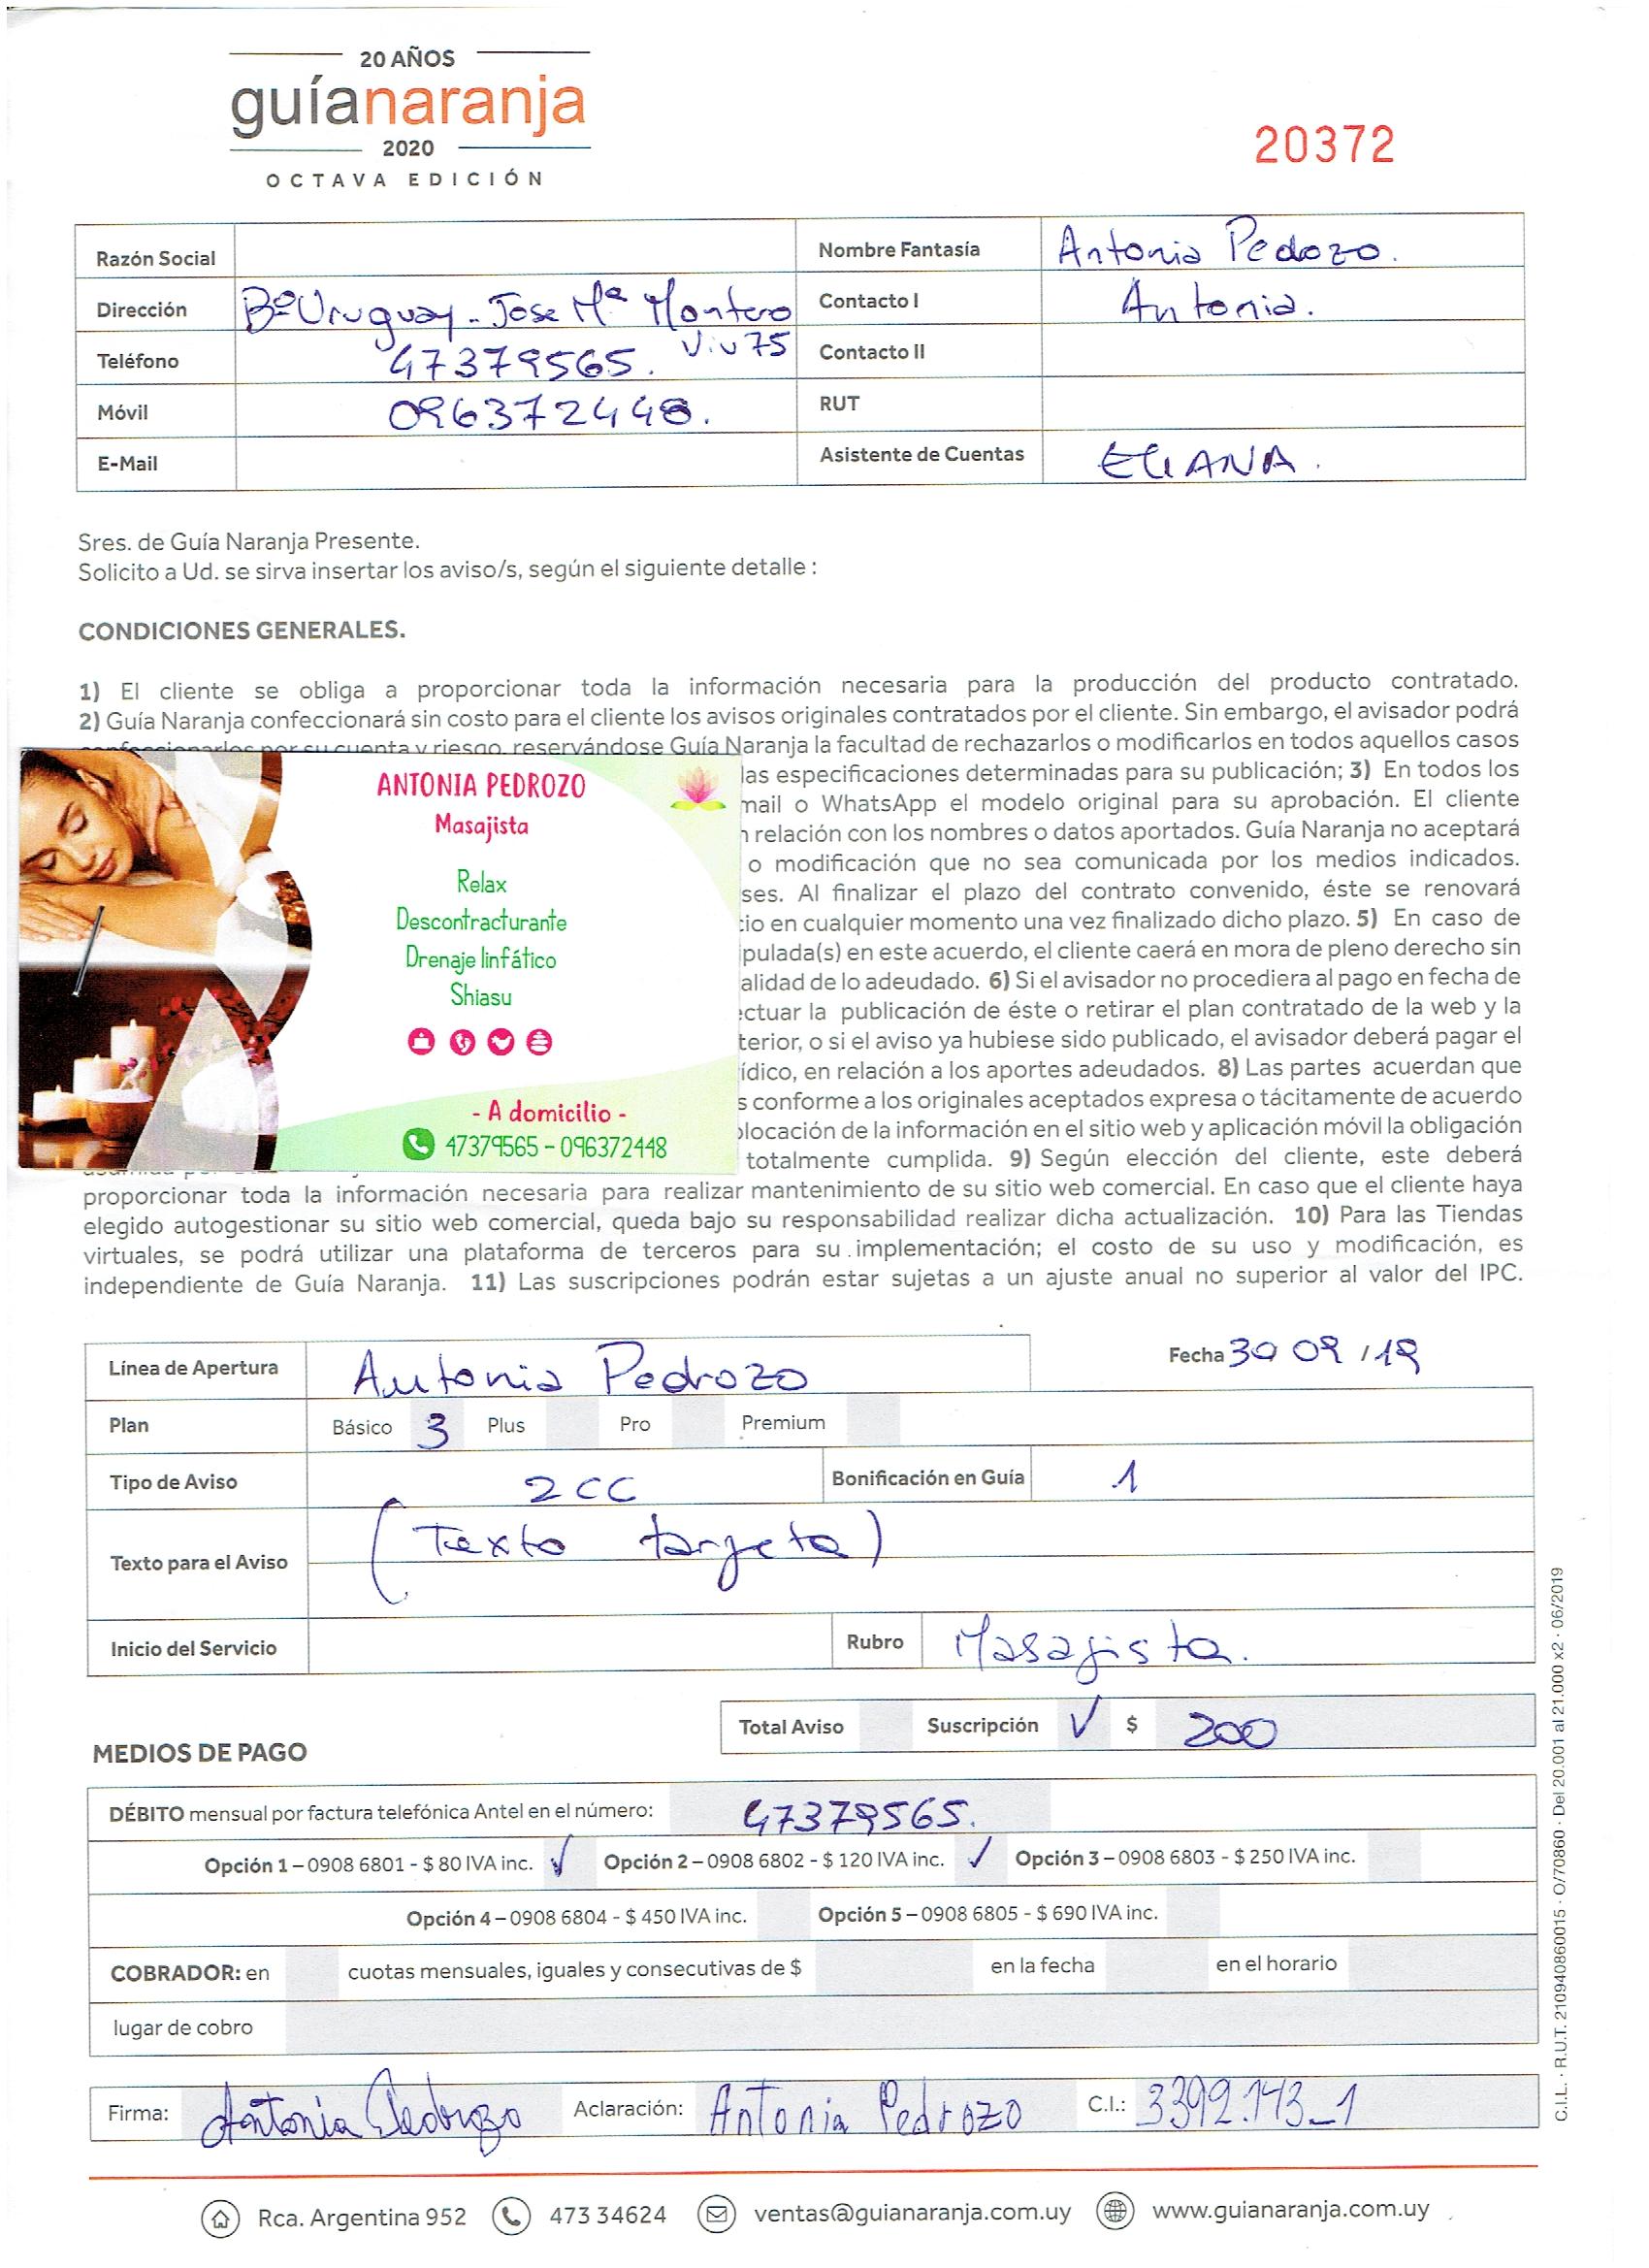 20 AÑOS
guíanaranja
2020
OCTAVA EDICIÓN
20372
Razón Social
Nombre Fantasía Antonia Pedozo.
Dirección Bº Uruguay - Jose Mª Montero Viv 75
Contacto I Antonia.
Teléfono 47379565.
Contacto II
Móvil 096372448.
RUT
E-Mail
Asistente de Cuentas ELIANA.
Sres. de Guía Naranja Presente.
Solicito a Ud. se sirva insertar los aviso/s, según el siguiente detalle :
CONDICIONES GENERALES.
1) El cliente se obliga a proporcionar toda la información necesaria para la producción del producto contratado.
2) Guía Naranja confeccionará sin costo para el cliente los avisos originales contratados por el cliente. Sin embargo, el avisador podrá
confeccionarlos por su cuenta y riesgo, reservándose Guía Naranja la facultad de rechazarlos o modificarlos en todos aquellos casos
las especificaciones determinadas para su publicación; 3) En todos los
mail o WhatsApp el modelo original para su aprobación. El cliente
relación con los nombres o datos aportados. Guía Naranja no aceptará
o modificación que no sea comunicada por los medios indicados.
ses. Al finalizar el plazo del contrato convenido, éste se renovará
en cualquier momento una vez finalizado dicho plazo. 5) En caso de
pulada(s) en este acuerdo, el cliente caerá en mora de pleno derecho sin
alidad de lo adeudado. 6) Si el avisador no procediera al pago en fecha de
ctuar la publicación de éste o retirar el plan contratado de la web y la
terior, o si el aviso ya hubiese sido publicado, el avisador deberá pagar el
ídico, en relación a los aportes adeudados. 8) Las partes acuerdan que
s conforme a los originales aceptados expresa o tácitamente de acuerdo
locación de la información en el sitio web y aplicación móvil la obligación
totalmente cumplida. 9) Según elección del cliente, este deberá
proporcionar toda la información necesaria para realizar mantenimiento de su sitio web comercial. En caso que el cliente haya
elegido autogestionar su sitio web comercial, queda bajo su responsabilidad realizar dicha actualización. 10) Para las Tiendas
virtuales, se podrá utilizar una plataforma de terceros para su implementación; el costo de su uso y modificación, es
independiente de Guía Naranja. 11) Las suscripciones podrán estar sujetas a un ajuste anual no superior al valor del IPC.
ANTONIA PEDROZO
Masajista
Relax
Descontracturante
Drenaje linfático
Shiasu
- A domicilio -
47379565 - 096372448
Línea de Apertura Antonia Pedrozo
Fecha 30 09 /19
Plan Básico 3 Plus Pro Premium
Tipo de Aviso 2CC Bonificación en Guía 1
Texto para el Aviso (Texto tarjeta)
Inicio del Servicio Rubro Masajista.
Total Aviso Suscripción ✓ $ 200
MEDIOS DE PAGO
DÉBITO mensual por factura telefónica Antel en el número: 47379565.
Opción 1 – 0908 6801 - $ 80 IVA inc. ✓ Opción 2 – 0908 6802 - $ 120 IVA inc. ✓ Opción 3 – 0908 6803 - $ 250 IVA inc.
Opción 4 – 0908 6804 - $ 450 IVA inc. Opción 5 – 0908 6805 - $ 690 IVA inc.
COBRADOR: en cuotas mensuales, iguales y consecutivas de $ en la fecha en el horario
lugar de cobro
Firma: Antonia Pedrozo Aclaración: Antonia Pedrozo C.I.: 3392.143_1
Rca. Argentina 952 473 34624 ventas@guianaranja.com.uy www.guianaranja.com.uy
C.I.L. · R.U.T. 210940860015 · O/70860 · Del 20.001 al 21.000 x2 · 06/2019